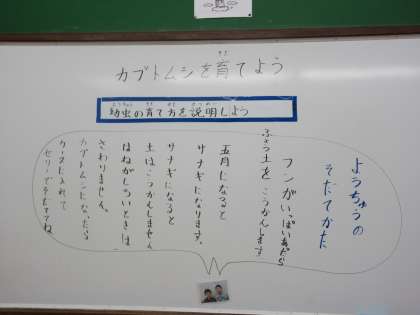 カブトムシを育てよう
幼虫の育て方を説明しよう
ようちゅうの
そだてかた
フンがいっぱいあったら
ふよう土をこうかんします
五月になると
サナギになります。
サナギになると
土はこうかんしません
はねがしろいときは
さわりません。
カブトムシになったら
ケースに入れて
ゼリーでそだててね